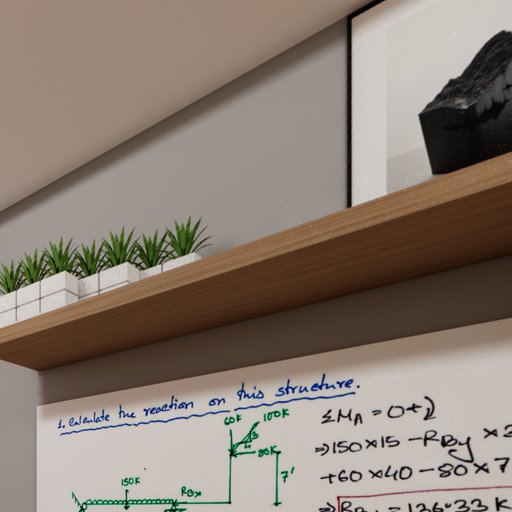 1. Calculate the reaction on this structure.
60K 100K
3
4
80K
7'
150K
RBx
ΣMA = 0+
⇒150×15 - RBy ×3
+60×40 - 80×7
⇒ RBy = 136.33 K